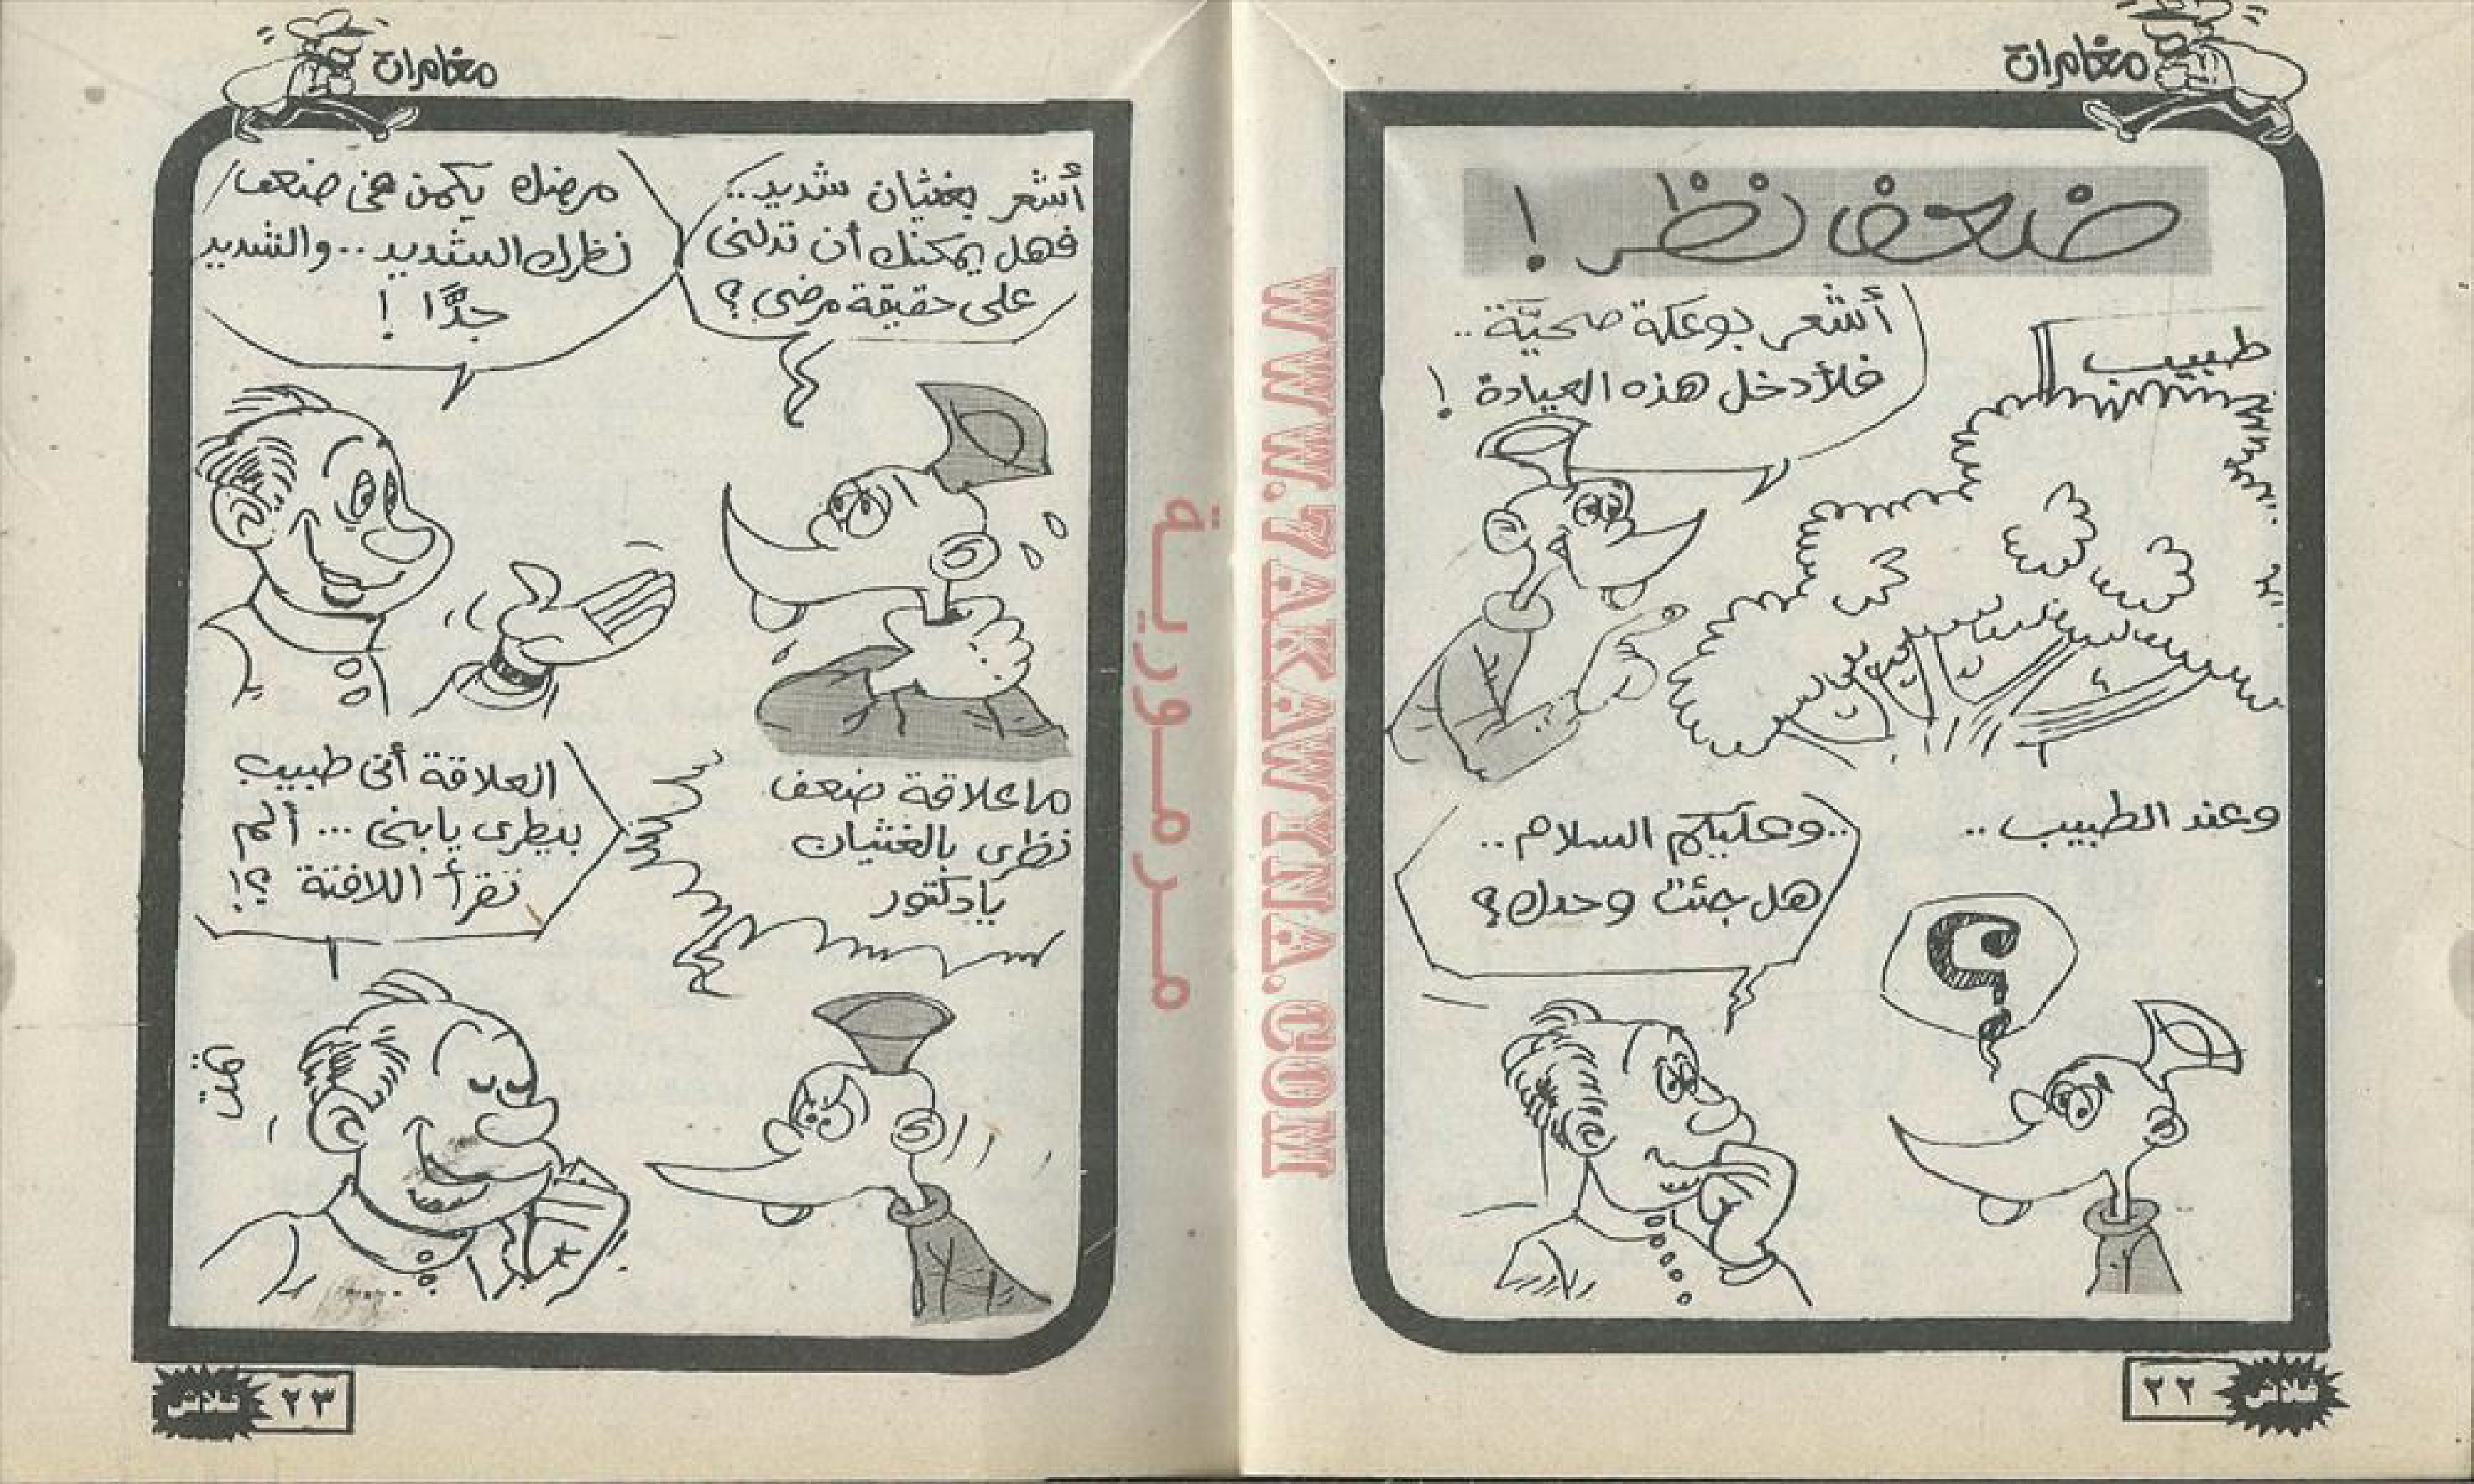 مغامرات
ضعف نظر !
طبيب
أشعر بوعكة صحيَّة..
فلأدخل هذه العيادة !
وعند الطبيب..
؟
..وعليكم السلام..
هل جئت وحدك؟
فلاش
٢٢
مغامرات
أشعر بغثيان شديد..
فهل يمكنك أن تدلنى
على حقيقة مرضى؟
مرضك يكمن فى ضعف
نظرك الشديد.. والشديد
جدًّا !
ما علاقة ضعف
نظرى بالغثيان
يا دكتور
العلاقة أنى طبيب
بيطرى يا بنى... ألم
تقرأ اللافتة ؟!
تمت
٢٣
فلاش
مرمورية
WWW.7AKAWINA.COM